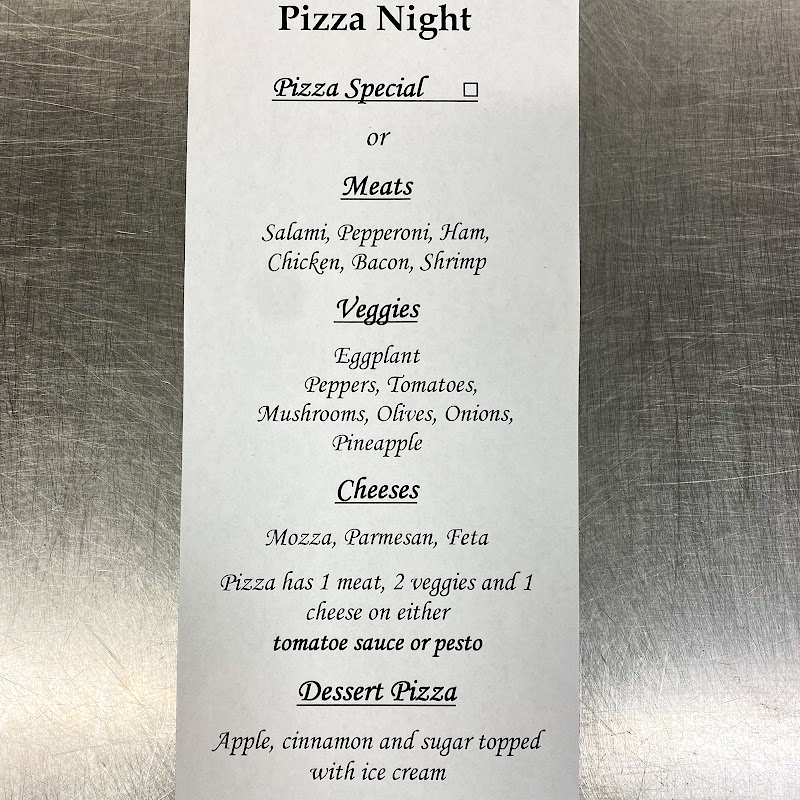 Pizza Night
Pizza Special ☐
or
Meats
Salami, Pepperoni, Ham,
Chicken, Bacon, Shrimp
Veggies
Eggplant
Peppers, Tomatoes,
Mushrooms, Olives, Onions,
Pineapple
Cheeses
Mozza, Parmesan, Feta
Pizza has 1 meat, 2 veggies and 1
cheese on either
tomatoe sauce or pesto
Dessert Pizza
Apple, cinnamon and sugar topped
with ice cream